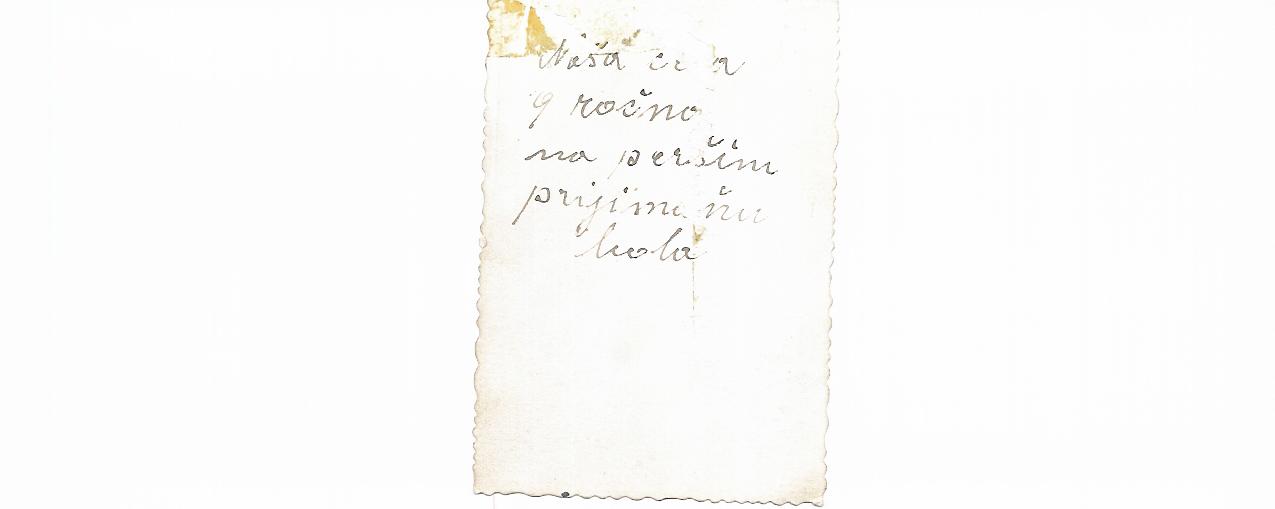 Naša
9 ročno
na peršim
prijimaňu
bola